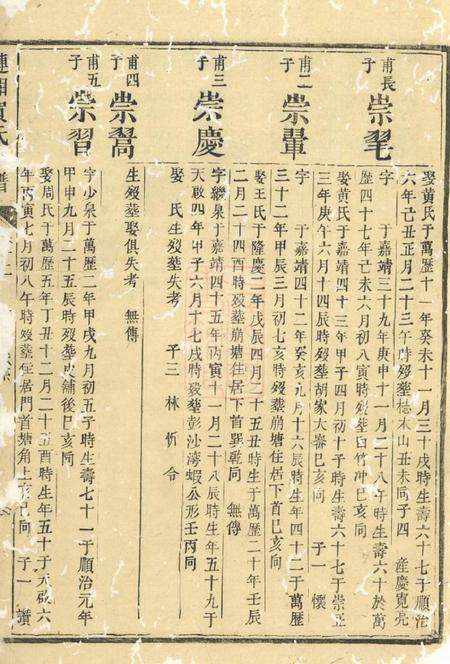 甫長子
崇毣
字　于嘉靖三十九年庚申十一月二十八午時生壽六十於萬
歷四十七年己未六月初八寅時歿葬白竹冲巳亥向
娶黃氏于萬歷十一年癸未十一月三十戌時生壽六十七于順治
六年己丑正月二十三午時歿葬　木山丑未向子四　産慶寬亮
甫二子
崇翬
字　于嘉靖四十二年癸亥九月十六辰時生年四十二于萬歷
三十二年甲辰三月初七亥時歿葬崩塘住居下首巳亥向
娶黃氏于嘉靖四十三年甲子四月初十子時生壽六十七于崇正
三年庚午六月十四辰時歿葬胡家大寨巳亥向　子一　懷
甫三子
崇慶
字繼泉于嘉靖四十五年丙寅十一月二十八辰時生年五十九于
天啟四年甲子六月十七戌時歿葬彭沙灣蝦公形壬丙向
娶王氏于隆慶二年戊辰四月二十五丑時生于萬歷二十年壬辰
二月二十四酉時歿葬崩塘住居下首巽乾向　無傳
娶　氏生歿葬失考　子三　林忻令
甫四子
崇翯
生歿葬娶俱失考　無傳
甫五子
崇習
字少泉于萬歷二年甲戌九月初五子時生壽七十一于順治元年
甲申九月二十五辰時歿葬　鋪後巳亥向
娶周氏于萬歷五年丁丑十二月二十五酉時生年五十于天啟六
年丙寅七月初八午時歿葬住居門首塘角上亥巳向　子一　讚
連湘賀氏
譜